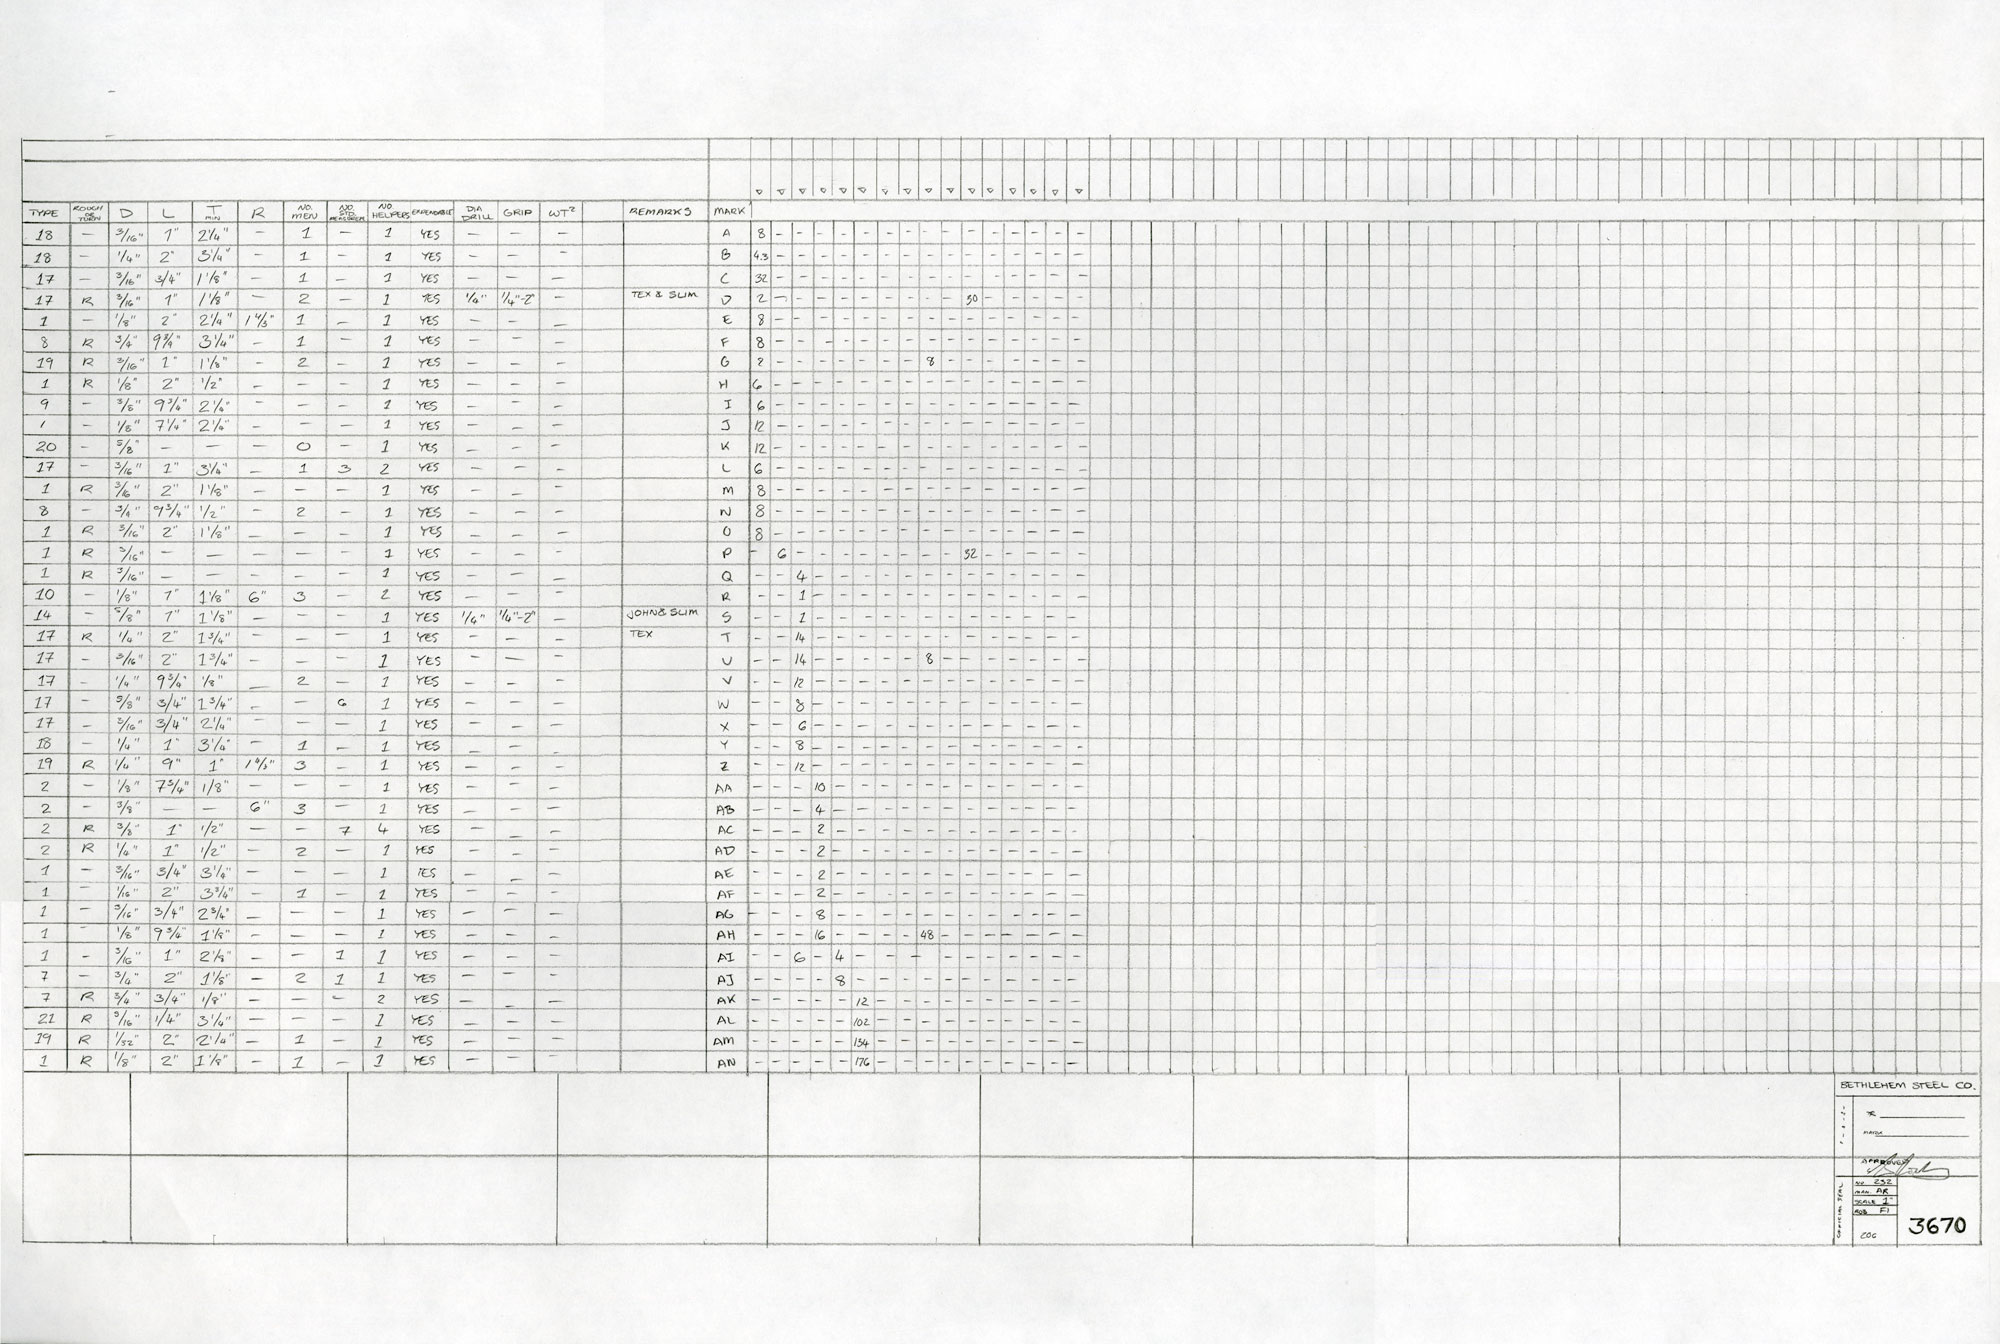 TYPE ROUGH OR TURN D L T MIN R NO. MEN NO. STD. MEASURER NO. HELPERS EXPENDABLE DIA DRILL GRIP WT² REMARKS MARK
18 - 3/16" 1" 2 1/4" - 1 - 1 YES - - - A 8 - - - - - - - - - - - - - - -
18 - 1/4" 2" 3 1/4" - 1 - 1 YES - - - B 43 - - - - - - - - - - - - - - -
17 - 3/16" 3/4" 1 1/8" - 1 - 1 YES - - - C 32 - - - - - - - - - - - - - - -
17 R 3/16" 1" 1 1/8" - 2 - 1 YES 1/4" 1/4"-2" - TEX & SLIM D 2 - - - - - - - - - 30 - - - - -
1 - 1/8" 2" 2 1/4" 1 4/3" 1 - 1 YES - - - E 8 - - - - - - - - - - - - - - -
8 R 3/4" 9 3/4" 3 1/4" - 1 - 1 YES - - - F 8 - - - - - - - - - - - - - - -
19 R 3/16" 1" 1 1/8" - 2 - 1 YES - - - G 2 - - - - - - - 8 - - - - - - -
1 R 1/8" 2" 1/2" - - - 1 YES - - - H 6 - - - - - - - - - - - - - - -
9 - 3/8" 9 3/4" 2 1/4" - - - 1 YES - - - I 6 - - - - - - - - - - - - - - -
1 - 1/8" 7 1/4" 2 1/4" - - - 1 YES - - - J 12 - - - - - - - - - - - - - - -
20 - 5/8" - - - 0 - 1 YES - - - K 12 - - - - - - - - - - - - - - -
17 - 3/16" 1" 3 1/4" - 1 3 2 YES - - - L 6 - - - - - - - - - - - - - - -
1 R 3/16" 2" 1 1/8" - - - 1 YES - - - M 8 - - - - - - - - - - - - - - -
8 - 3/4" 9 3/4" 1/2" - 2 - 1 YES - - - N 8 - - - - - - - - - - - - - - -
1 R 3/16" 2" 1 1/8" - - - 1 YES - - - O 8 - - - - - - - - - - - - - - -
1 R 3/16" - - - - - 1 YES - - - P - 6 - - - - - - - - 32 - - - - -
1 R 3/16" - - - - - 1 YES - - - Q - - 4 - - - - - - - - - - - - -
10 - 1/8" 1" 1 1/8" 6" 3 - 2 YES - - - R - - 1 - - - - - - - - - - - - -
14 - 5/8" 1" 1 1/8" - - - 1 YES 1/4" 1/4"-2" - JOHN & SLIM S - - 1 - - - - - - - - - - - - -
17 R 1/4" 2" 1 3/4" - - - 1 YES - - - TEX T - - 14 - - - - - - - - - - - - -
17 - 3/16" 2" 1 3/4" - - - 1 YES - - - U - - 14 - - - - - 8 - - - - - - -
17 - 1/4" 9 3/4" 1/8" - 2 - 1 YES - - - V - - 12 - - - - - - - - - - - - -
17 - 5/8" 3/4" 1 3/4" - - 6 1 YES - - - W - - 8 - - - - - - - - - - - - -
17 - 3/16" 3/4" 2 1/4" - - - 1 YES - - - X - - 6 - - - - - - - - - - - - -
18 - 1/4" 1" 3 1/4" - 1 - 1 YES - - - Y - - 8 - - - - - - - - - - - - -
19 R 1/4" 9" 1" 1 4/3" 3 - 1 YES - - - Z - - 12 - - - - - - - - - - - - -
2 - 1/8" 7 3/4" 1/8" - - - 1 YES - - - AA - - - 10 - - - - - - - - - - - -
2 - 3/8" - - 6" 3 - 1 YES - - - AB - - - 4 - - - - - - - - - - - -
2 R 3/8" 1" 1/2" - - 7 4 YES - - - AC - - - 2 - - - - - - - - - - - -
2 R 1/4" 1" 1/2" - 2 - 1 YES - - - AD - - - 2 - - - - - - - - - - - -
1 - 3/16" 3/4" 3 1/4" - - - 1 YES - - - AE - - - 2 - - - - - - - - - - - -
1 - 1/16" 2" 3 3/4" - 1 - 1 YES - - - AF - - - 2 - - - - - - - - - - - -
1 - 3/16" 3/4" 2 3/4" - - - 1 YES - - - AG - - - 8 - - - - - - - - - - - -
1 - 1/8" 9 3/4" 1 1/8" - - - 1 YES - - - AH - - - 16 - - - - 48 - - - - - - -
1 - 3/16" 1" 2 1/8" - - 1 1 YES - - - AI - - 6 - 4 - - - - - - - - - - -
7 - 3/4" 2" 1 1/8" - 2 1 1 YES - - - AJ - - - - 8 - - - - - - - - - - -
7 R 3/4" 3/4" 1/8" - - - 2 YES - - - AK - - - - - 12 - - - - - - - - - -
21 R 3/16" 1/4" 3 1/4" - - - 1 YES - - - AL - - - - - 102 - - - - - - - - - -
19 R 1/32" 2" 2 1/4" - 1 - 1 YES - - - AM - - - - - 134 - - - - - - - - - -
1 R 1/8" 2" 1 1/8" - 1 - 1 YES - - - AN - - - - - 176 - - - - - - - - - -
BETHLEHEM STEEL CO.
MARK
APPROVED
NO. 232
MAN. AR
SCALE 1"
FI
OFFICIAL SEAL
3670